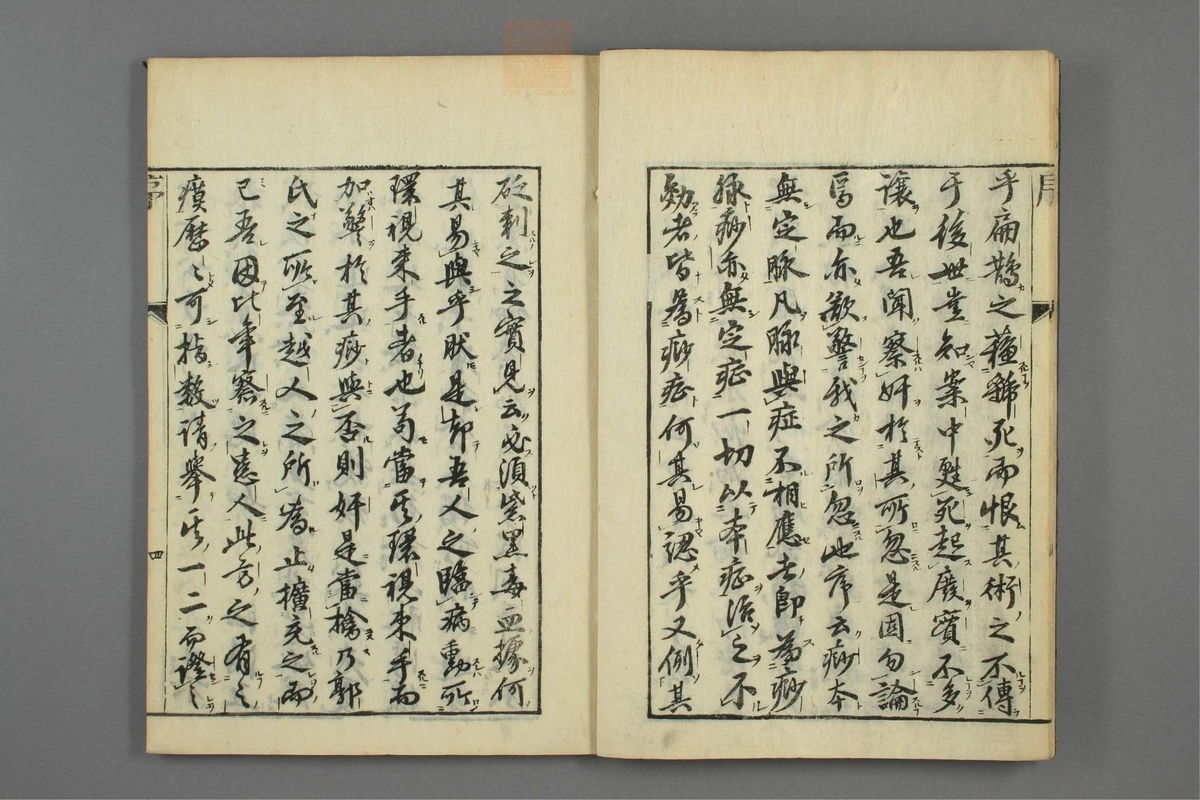 乎扁鵲之蘊稀死而恨其術之不傳
于後世豈知案中甦死起廢實不多
讓也吾聞察奸於其所忽是固勿論
焉而亦敵警我之所忽也序云痧本
無定脉凡脉與症不相應者即為痧
脉痧亦無定症一切以本症治之不
効者皆為痧症何其易認乎又例其
砭刺之之實見云必須紫黑毒血據何
其易與乎肰是却吾人之臨病動所
環視束手者也苟當其環視束手而
加鑒於其痧與否則奸是當擒乃郭
氏之所至越人之所為止擴充之而
已吾因比年察之遠人此方之有之
癀歷〻可指數請舉其一二而證之
序
四